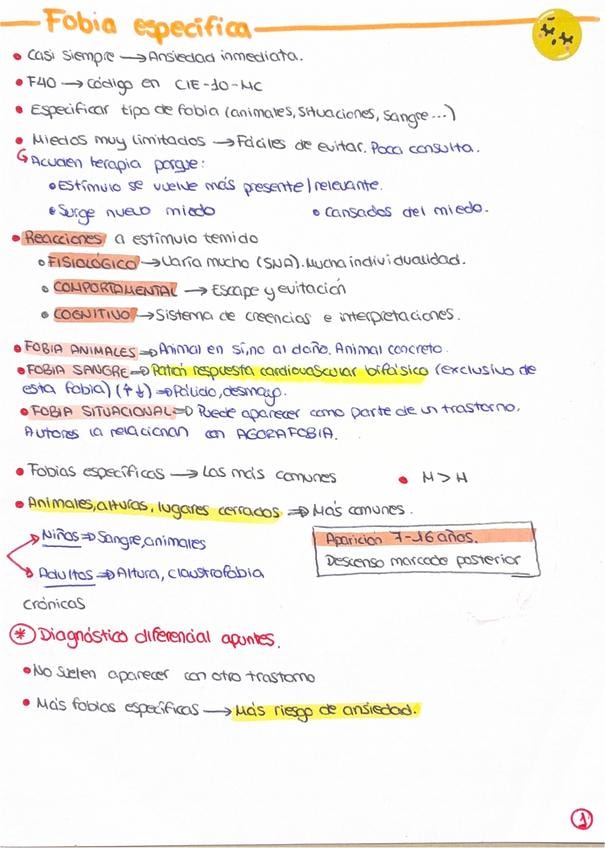 Fobia específica
• Casi siempre → Ansiedad inmediata.
• F40 → Código en CIE-10-MC
• Especificar tipo de fobia (animales, situaciones, sangre...)
• Miedos muy limitados → Fáciles de evitar. Poca consulta.
↳ Acuden terapia porque:
• Estímulo se vuelve más presente/relevante.
• Surge nuevo miedo • Cansados del miedo.
• Reacciones a estímulo temido
• FISIOLÓGICO → Varía mucho (SNA). Mucha individualidad.
• COMPORTAMENTAL → Escape y evitación
• COGNITIVO → Sistema de creencias e interpretaciones.
• FOBIA ANIMALES ⇒ Animal en sí, no al daño. Animal concreto.
• FOBIA SANGRE ⇒ Patrón respuesta cardiovascular bifásico (exclusivo de
esta fobia) (↑↓) ⇒ Pálido, desmayo.
• FOBIA SITUACIONAL ⇒ Puede aparecer como parte de un trastorno.
Autores la relacionan con AGORAFOBIA.
• Fobias específicas → Las más comunes • M > H
• Animales, alturas, lugares cerrados ⇒ Más comunes.
Niños ⇒ Sangre, animales
Aparición 7-16 años.
Descenso marcado posterior
Adultos ⇒ Altura, claustrofobia
crónicas
* Diagnóstico diferencial apuntes.
• No suelen aparecer con otro trastorno
• Más fobias específicas → Más riesgo de ansiedad.
1